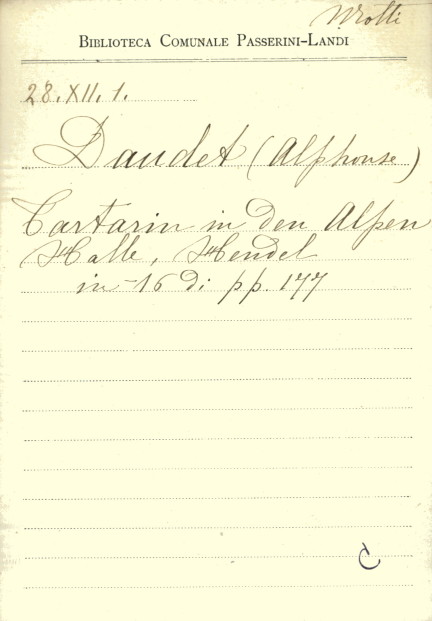 BIBLIOTECA COMUNALE PASSERINI-LANDI
28.XII.1.
Daudet (Alphonse)
Tartarin in den Alpen
Halle, Hendel
in-16 di pp. 177
C